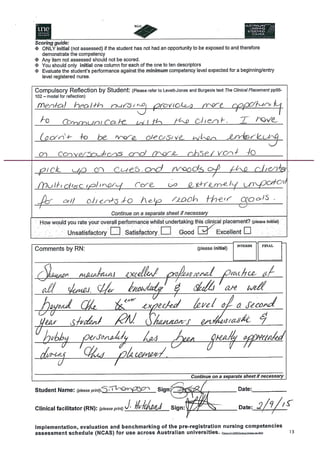 une
Scoring guide:
ONLY initial (not assessed) if the student has not had an opportunity to be exposed to and therefore
demonstrate the competency
Any item not assessed should not be scored.
You should only initial one column for each of the one to ten descriptors
Evaluate the student's performance against the minimum competency level expected for a beginning/entry
level registered nurse.
Compulsory Reflection by Student: (Please refer to Levett-Jones and Burgess text The Clinical Placement pp98-
102 – model for reflection)
mental health nursing provides more opportunity
to communicate with the client. I have
learnt to be more decisive when embarking
on conversations and more observant to
pick up on cues and moods of the clients
Multidisciplinary care is extremely important
for all clients to help reach their goals.
Continue on a separate sheet if necessary
How would you rate your overall performance whilst undertaking this clinical placement? (please initial)
Unsatisfactory Satisfactory Good Excellent
Comments by RN: (please initial) INTERIM FINAL
Shannon maintains excellent professional practice at
all times. Her knowledge & skills are well
beyond the expected level of a second
year student RN. Shannon's enthusiastic &
bubbly personality has been greatly appreciated
during this placement.
Continue on a separate sheet if necessary
Student Name: (please print) S. Thompson Sign: Date:
Clinical facilitator (RN): (please print) J. Hutchens Sign: Date: 2/9/15
Implementation, evaluation and benchmarking of the pre-registration nursing competencies
assessment schedule (NCAS) for use across Australian universities.